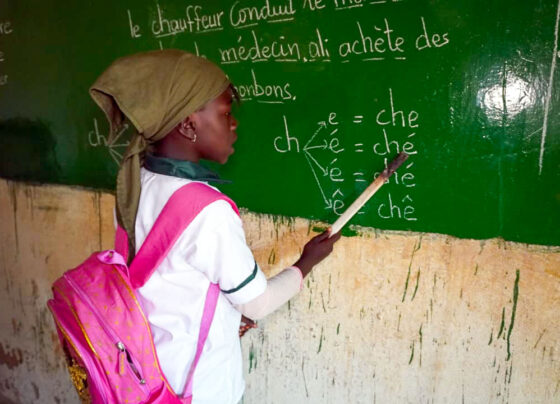 le chauffeur conduit le
médecin. ali achète des
bonbons.
ch e = che
é = ché
é = ché
ê = chê
ch